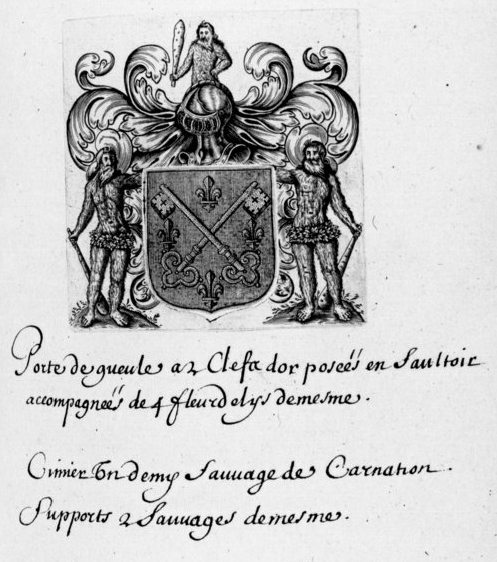 Porte de gueule a 2 Clefs dor poseés en Saultoir
accompagneés de 4 fleurdelys demesme.
Cimier Un demy Sauuage de Carnation.
Supports 2 Sauuages demesme.